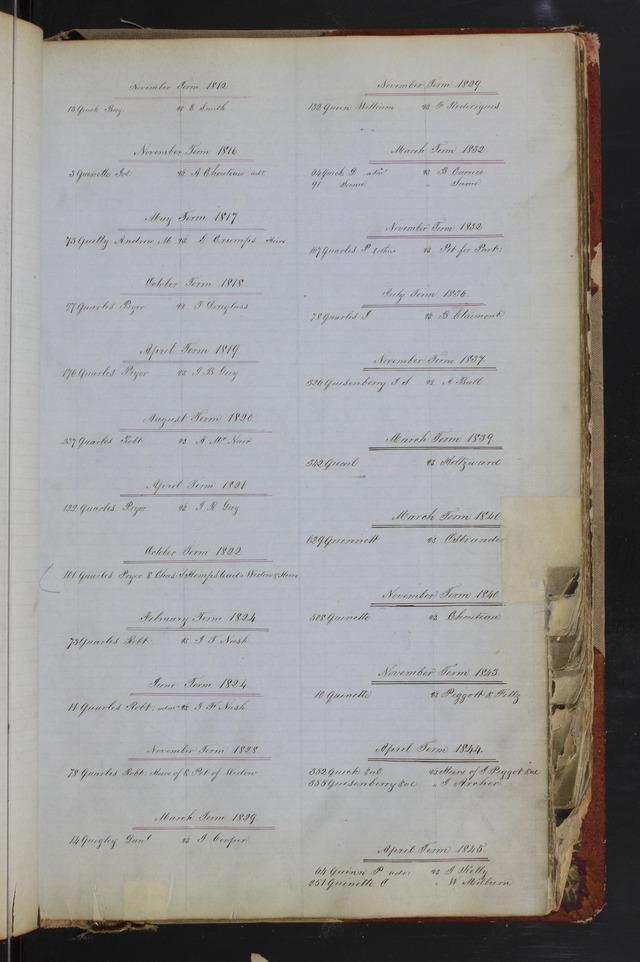 November Term 1812
13 Quick Benj. vs E Smith
November Term 1816
3 Quenette Jos. vs A Chouteau adr
May Term 1817
73 Quelly Andrew M vs G Crumps Heirs
October Term 1818
97 Quarles Pryor vs T Douglass
April Term 1819
176 Quarles Pryor vs J B Guy
August Term 1820
237 Quarles Robt. vs A McNair
April Term 1821
122 Quarles Pryor vs J R Guy
October Term 1822
101 Quarles Pryor & Chas. S Hempstead vs Widow & Heirs
February Term 1824
73 Quarles Robt. vs J F Nash
June Term 1824
11 Quarles Robt. adm vs J F Nash
November Term 1828
78 Quarles Robt. Heirs of & Pet of Widow
March Term 1829
14 Quigley Danl vs J Cooper
November Term 1829
132 Queen William vs F Rodrigues
March Term 1832
64 Quick D adm vs B Carrico
91 Same " Same
November Term 1832
107 Quarles P & others vs Pet for Part:
July Term 1836
78 Quarles J vs B Claimont
November Term 1837
326 Quesenberry J S vs A Ball
March Term 1839
342 Queail vs Holtzward
March Term 1840
629 Quennett vs Ostrander
November Term 1840
508 Quenette vs Chouteau
November Term 1843
10 Quenette vs Piggott & Feltz
April Term 1844
332 Quick & al vs Heirs of J Piggot & al
338 Quesenberry & al " J Archer
April Term 1845
64 Quinn P adm vs J Kelly
251 Quenette C " W Milburn